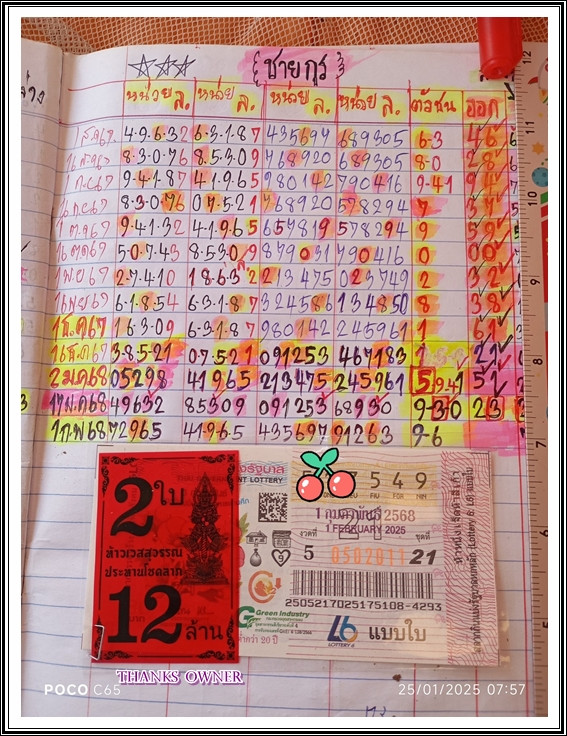 {ชายกร}
หน่วย ล. หน่วย ล. หน่วย ล. หน่วย ล. ตัวชน ออก
ส.ค 67 4-9-6-32 6-3-1-87 435697 689305 6-3 46
8-3-0-76 8.5.3-09 768920 689305 8-0 28
ก.ย 67 9-4-1-87 41.9.65 980142 790416 9-41
16 ก.ย 67 8-3-0-76 0.7.5.21 768920 578294 7 37
1 ต.ค 67 9-41.32 41.9.65 657819 578294 9 59
16 ต.ค 67 5-0.7-43 8.53.09 879031 790416 0
1 พ.ย 67 2-7.410 18-6-3 2 213475 023749 2 32
16 พ.ย 67 6-1.8.54 6-3.1.87 324586 134850 8 38
1 ธ.ค 67 1 6-3-09 6-3-1.87 980142 245961 1 61
16 ธ.ค 67 3-8.5-21 0.7.5.21 091253 467183 21
2 ม.ค 68 05298 41965 213475 245961 5.9.41 51
17 ม.ค 68 49632 85309 091253 68930 9-3/0 23
1 ก.พ 68 72965 41.9.65 435697 91263 9-6
2 ใบ
ท้าวเวสสุวรรณ
ประทานโชคลาภ
12 ล้าน
NT LOTTERY
549
1 กุมภาพันธ์ 2568
1 FEBRUARY 2025
งวดที่ 5
ชุดที่ 21
2505217025175108-4293
Green Industry
L6 LOTTERY 6 แบบใบ
ต่ำกว่า 20 ปี
THANKS OWNER
POCO C65
25/01/2025 07:57